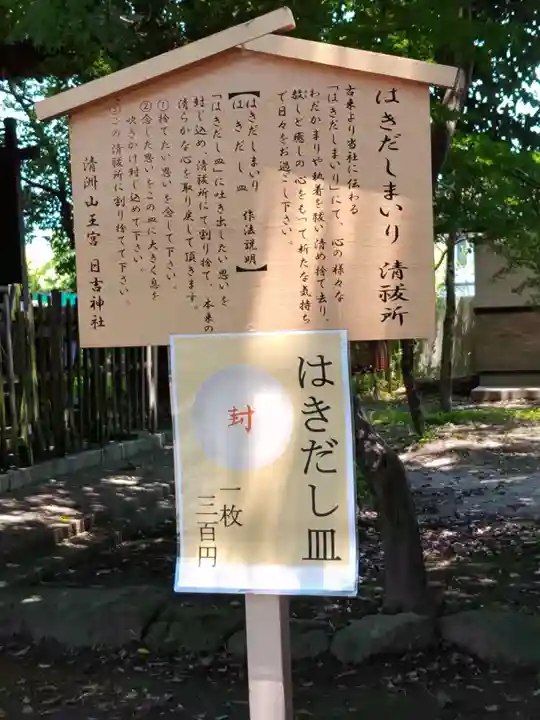 はきだしまいり 清祓所
古来より当社に伝わる
「はきだしまいり」にて、心の様々な
わだかまりや執着を祓い清め捨て去り、
赦しと癒しの心をもって新たな気持ち
で日々をお過ごし下さい。
【はきだしまいり
はきだし皿 作法説明】
「はきだし皿」に吐き出したい思いを
封じ込め、清祓所にて割り捨て、本来の
清らかな心を取り戻して頂きます。
①捨てたい思いを念じて下さい。
②念じた思いをこの皿に大きく息を
吹きかけ封じ込めて下さい
③この清祓所に割り捨てて下さい。
清洲山王宮 日吉神社
はきだし皿
封
一枚
三百円